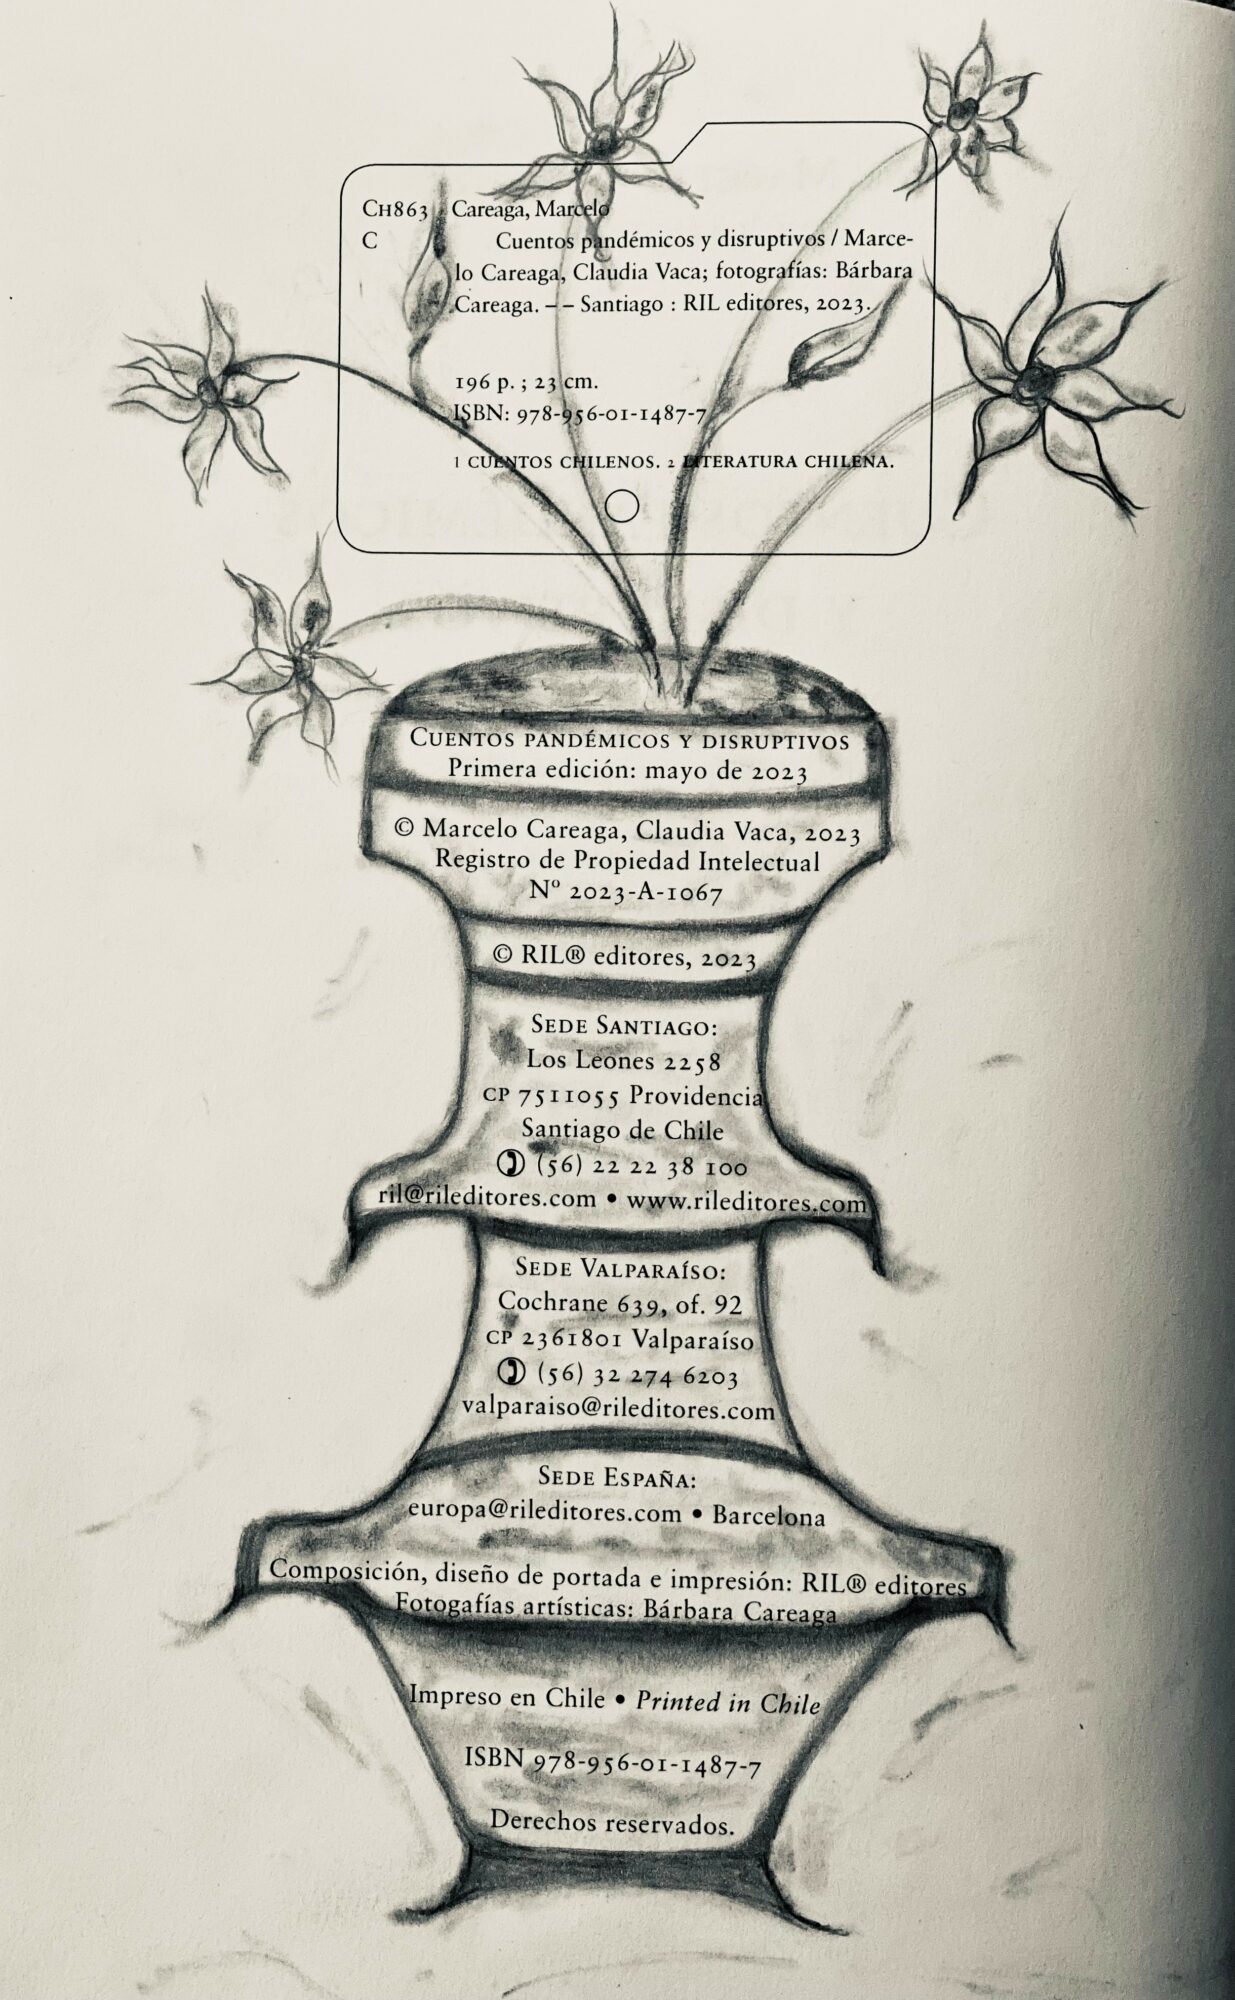 CH863 Careaga, Marcelo
C Cuentos pandémicos y disruptivos / Marce-
lo Careaga, Claudia Vaca; fotografías: Bárbara
Careaga. -- Santiago : RIL editores, 2023.
196 p. ; 23 cm.
ISBN: 978-956-01-1487-7
1 CUENTOS CHILENOS. 2 LITERATURA CHILENA.
CUENTOS PANDÉMICOS Y DISRUPTIVOS
Primera edición: mayo de 2023
© Marcelo Careaga, Claudia Vaca, 2023
Registro de Propiedad Intelectual
Nº 2023-A-1067
© RIL® editores, 2023
SEDE SANTIAGO:
Los Leones 2258
CP 7511055 Providencia
Santiago de Chile
(56) 22 22 38 100
ril@rileditores.com • www.rileditores.com
SEDE VALPARAÍSO:
Cochrane 639, of. 92
CP 2361801 Valparaíso
(56) 32 274 6203
valparaiso@rileditores.com
SEDE ESPAÑA:
europa@rileditores.com • Barcelona
Composición, diseño de portada e impresión: RIL® editores
Fotogafías artísticas: Bárbara Careaga
Impreso en Chile • Printed in Chile
ISBN 978-956-01-1487-7
Derechos reservados.